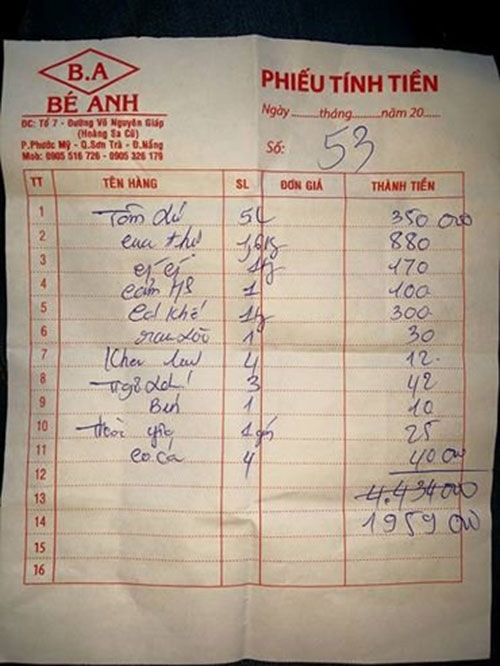 B.A
BÉ ANH
ĐC: Tổ 7 - Đường Võ Nguyên Giáp
(Hoàng Sa Cũ)
P.Phước Mỹ - Q.Sơn Trà - Đ.Nẵng
Mob: 0905 516 726 - 0905 326 179
PHIẾU TÍNH TIỀN
Ngày ........tháng..........năm 20......
Số: 53
TT TÊN HÀNG SL ĐƠN GIÁ THÀNH TIỀN
1 Tôm 350 000
2 cua 1,6kg 880
3 1kg 170
4 cơm 1 100
5 cá 1kg 300
6 rau 1 30
7 Khăn 4 12
8 3 42
9 1 10
10 1 gói 25
11 coca 4 40 000
12
13 4.434 000
14 1959 000
15
16